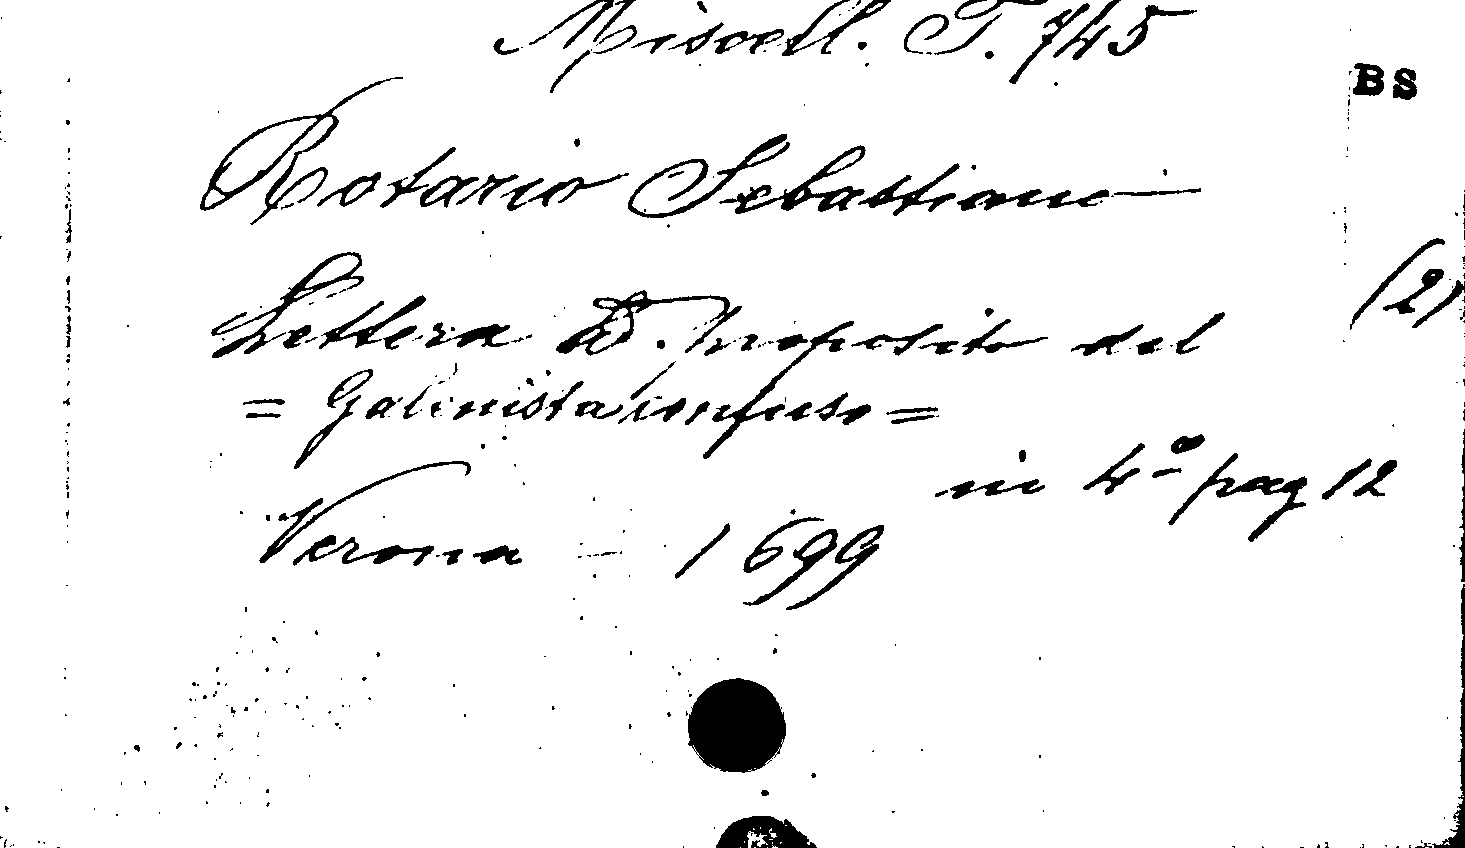 Miscell. T. 745
BS
Rotario Sebastiano
(2)
Lettera a Proposito del
= Galenista confuso =
in 4º pag 12
Verona – 1699